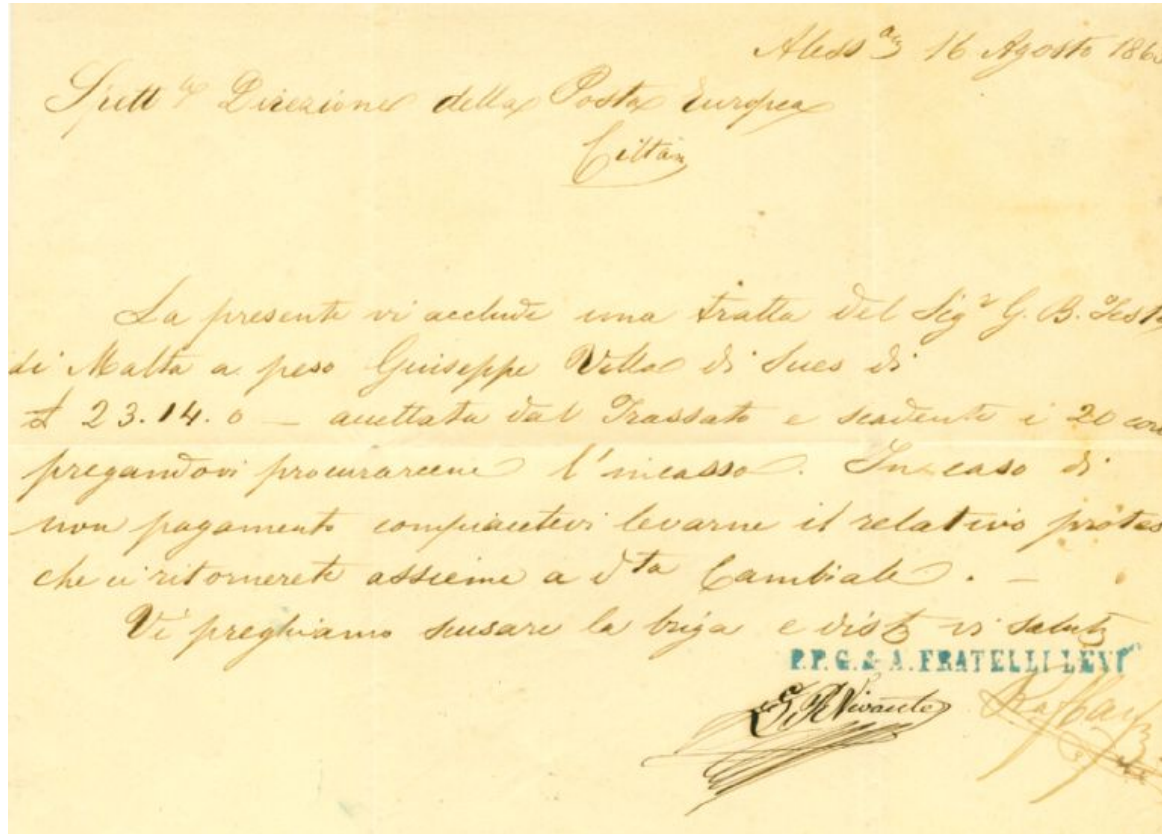 Aless.a 16 Agosto 186
Spett.le Direzione della Posta Europea
Città
La presente vi acclude una tratta del Sig.r G. B. Testa
di Malta a peso Giuseppe Villa di Sues di
£ 23.14.0 — accettata dal Trassato e scadente i 20 corr
pregandovi procurarcene l'incasso. In caso di
non pagamento compiacetevi levarne il relativo protes
che ci ritornerete assieme a d.ta Cambiale. —
Vi preghiamo scusare la briga e vi
P.P. G. & A. FRATELLI LEVI
Vivante